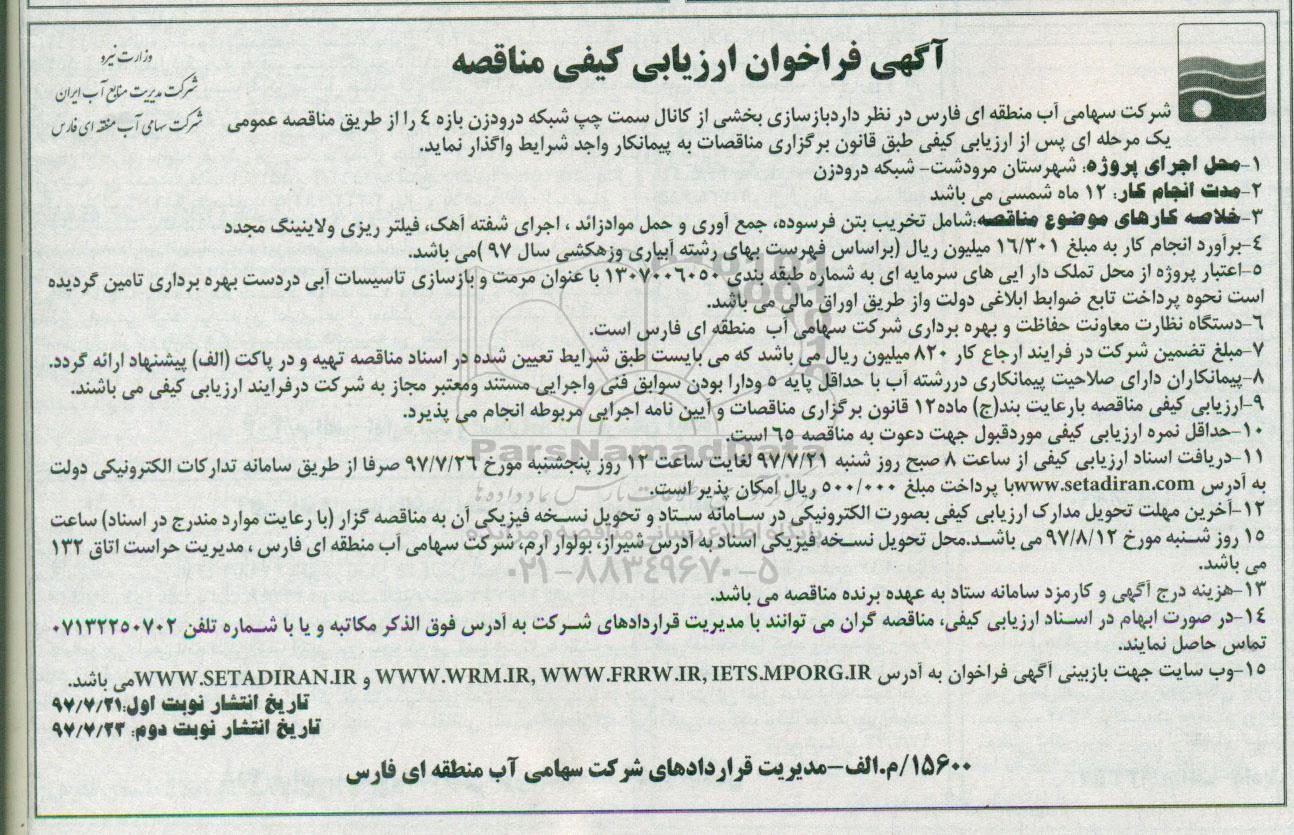 وزارت نیرو
شرکت مدیریت منابع آب ایران
شرکت سهامی آب منطقه ای فارس
آگهی فراخوان ارزیابی کیفی مناقصه
شرکت سهامی آب منطقه ای فارس در نظر داردبازسازی بخشی از کانال سمت چپ شبکه درودزن بازه ٤ را از طریق مناقصه عمومی
یک مرحله ای پس از ارزیابی کیفی طبق قانون برگزاری مناقصات به پیمانکار واجد شرایط واگذار نماید.
۱-محل اجرای پروژه: شهرستان مرودشت- شبکه درودزن
۲-مدت انجام کار: ۱۲ ماه شمسی می باشد
۳-خلاصه کارهای موضوع مناقصه:شامل تخریب بتن فرسوده، جمع آوری و حمل موادزائد ، اجرای شفته آهک، فیلتر ریزی ولاینینگ مجدد
٤-برآورد انجام کار به مبلغ ۱٦/۳۰۱ میلیون ریال (براساس فهرست بهای رشته آبیاری وزهکشی سال ۹۷ )می باشد.
٥-اعتبار پروژه از محل تملک دار ایی های سرمایه ای به شماره طبقه بندی ۱۳۰۷۰۰٦۰٥۰ با عنوان مرمت و بازسازی تاسیسات آبی دردست بهره برداری تامین گردیده
است نحوه پرداخت تابع ضوابط ابلاغی دولت واز طریق اوراق مالی می باشد.
٦-دستگاه نظارت معاونت حفاظت و بهره برداری شرکت سهامی آب منطقه ای فارس است.
۷-مبلغ تضمین شرکت در فرایند ارجاع کار ۸۲۰ میلیون ریال می باشد که می بایست طبق شرایط تعیین شده در اسناد مناقصه تهیه و در پاکت (الف) پیشنهاد ارائه گردد.
۸-پیمانکاران دارای صلاحیت پیمانکاری دررشته آب با حداقل پایه ٥ ودارا بودن سوابق فنی واجرایی مستند ومعتبر مجاز به شرکت درفرایند ارزیابی کیفی می باشند.
۹-ارزیابی کیفی مناقصه بارعایت بند(ج) ماده۱۲ قانون برگزاری مناقصات و آیین نامه اجرایی مربوطه انجام می پذیرد.
۱۰-حداقل نمره ارزیابی کیفی موردقبول جهت دعوت به مناقصه ٦٥ است.
۱۱-دریافت اسناد ارزیابی کیفی از ساعت ۸ صبح روز شنبه ۹۷/۷/۲۱ لغایت ساعت ۱۳ روز پنجشنبه مورخ ۹۷/۷/۲٦ صرفا از طریق سامانه تدارکات الکترونیکی دولت
به آدرس www.setadiran.comبا پرداخت مبلغ ٥۰۰/۰۰۰ ریال امکان پذیر است.
۱۲-آخرین مهلت تحویل مدارک ارزیابی کیفی بصورت الکترونیکی در سامانه ستاد و تحویل نسخه فیزیکی آن به مناقصه گزار (با رعایت موارد مندرج در اسناد) ساعت
۱٥ روز شنبه مورخ ۹۷/۸/۱۲ می باشد.محل تحویل نسخه فیزیکی اسناد به آدرس شیراز، بولوار ارم، شرکت سهامی آب منطقه ای فارس ، مدیریت حراست اتاق ۱۳۲
می باشد.
۱۳-هزینه درج آگهی و کارمزد سامانه ستاد به عهده برنده مناقصه می باشد.
۱٤-در صورت ابهام در اسناد ارزیابی کیفی، مناقصه گران می توانند با مدیریت قراردادهای شرکت به آدرس فوق الذکر مکاتبه و یا با شماره تلفن ۰۷۱۳۲۲٥۰۷۰۲
تماس حاصل نمایند.
۱٥-وب سایت جهت بازبینی آگهی فراخوان به آدرس WWW.WRM.IR, WWW.FRRW.IR, IETS.MPORG.IR و WWW.SETADIRAN.IRمی باشد.
تاریخ انتشار نوبت اول:۹۷/۷/۲۱
تاریخ انتشار نوبت دوم: ۹۷/۷/۲۳
۱٥٦۰۰/م.الف-مدیریت قراردادهای شرکت سهامی آب منطقه ای فارس
ParsNamadData
پایگاه اطلاع رسانی مناقصه و مزایده
۰۲۱-۸۸۳۴۹۶۷۰-۵